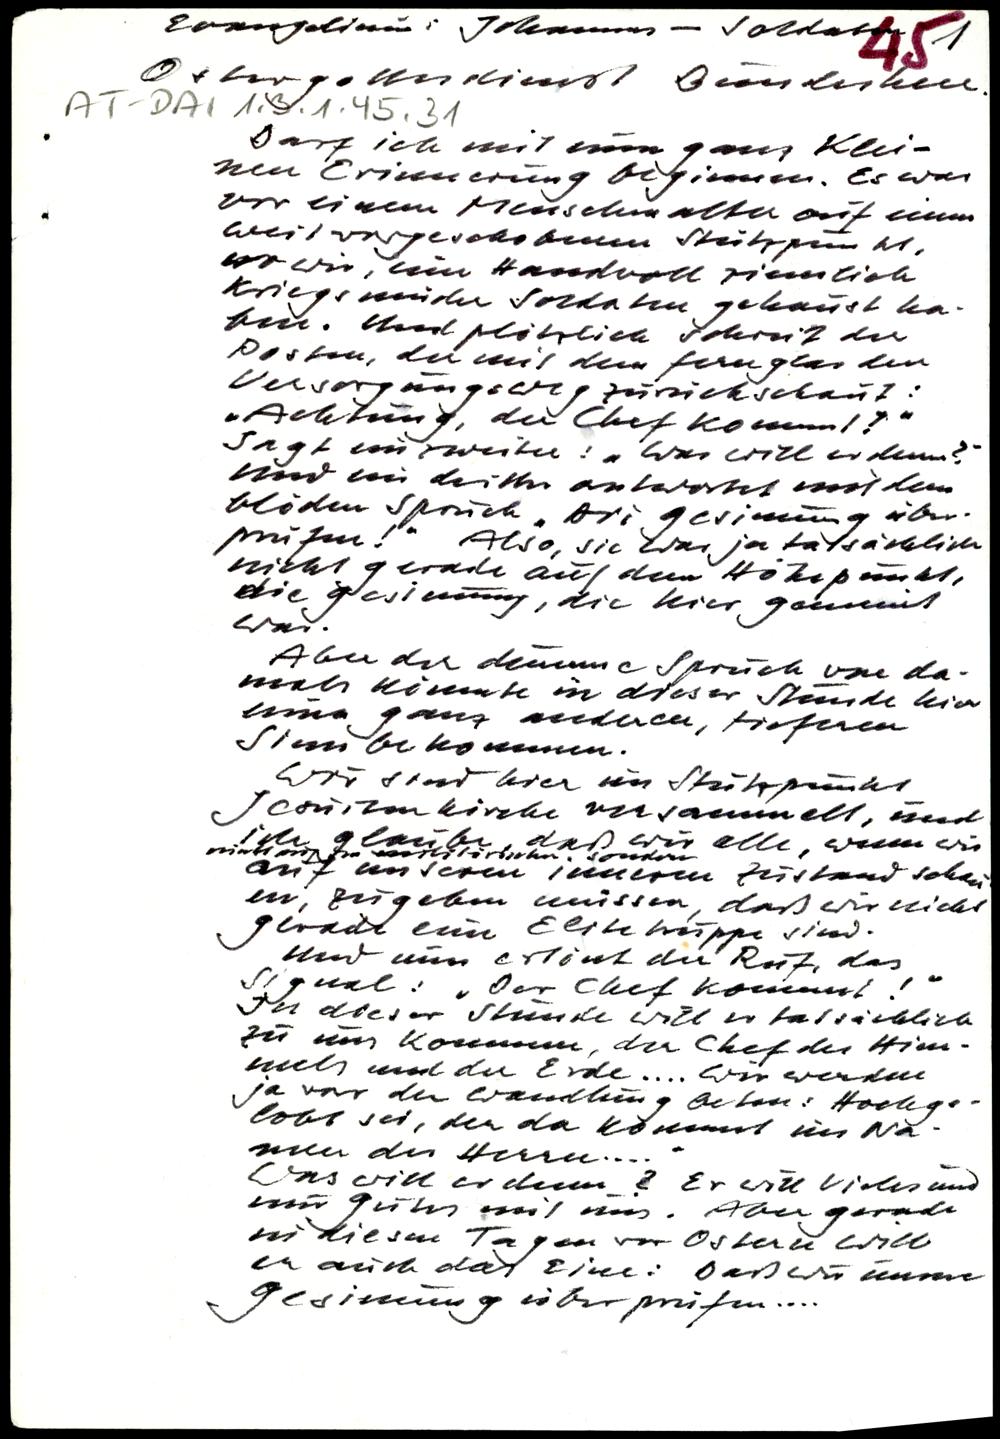 Evangelium: Johannes – Soldaten 45 1
Ostergottesdienst Bundesheer.
AT-DAI 1.3.1.45.31
Darf ich mit einer ganz klei-
nen Erinnerung beginnen. Es war
vor einem Menschenalter auf einem
weit vorgeschobenen Stützpunkt,
wo wir, eine Handvoll ziemlich
kriegsmüder Soldaten gehaust ha-
ben. Und plötzlich schreit der
Posten, der mit dem Fernglas den
Versorgungsweg zurückschaut:
„Achtung, der Chef kommt!"
Sagt ein zweiter: „Was will er denn?"
Und ein dritter antwortet mit dem
blöden Spruch „Die Gesinnung über-
prüfen!" Also, sie war ja tatsächlich
nicht gerade auf dem Höhepunkt,
die Gesinnung, die hier gemeint
war.
Aber der dumme Spruch von da-
mals könnte in dieser Stunde hier
einen ganz anderen, tieferen
Sinn bekommen.
Wir sind hier im Stützpunkt
Jesuitenkirche versammelt, und
ich glaube, daß wir alle, wenn wir
nicht auf den militärischen, sondern
auf unseren inneren Zustand schau-
en, zugeben müssen, daß wir nicht
gerade eine Elitetruppe sind.
Und nun ertönt der Ruf, das
Signal: „Der Chef kommt!"
In dieser Stunde will er tatsächlich
zu uns kommen, der Chef des Him-
mels und der Erde.... Wir werden
ja vor der Wandlung beten: Hochge-
lobt sei, der da kommt im Na-
men des Herrn...."
Was will er denn? Er will Vieles und
nur Gutes mit uns. Aber gerade
in diesen Tagen vor Ostern will
er auch das Eine: Daß wir unsere
Gesinnung überprüfen....